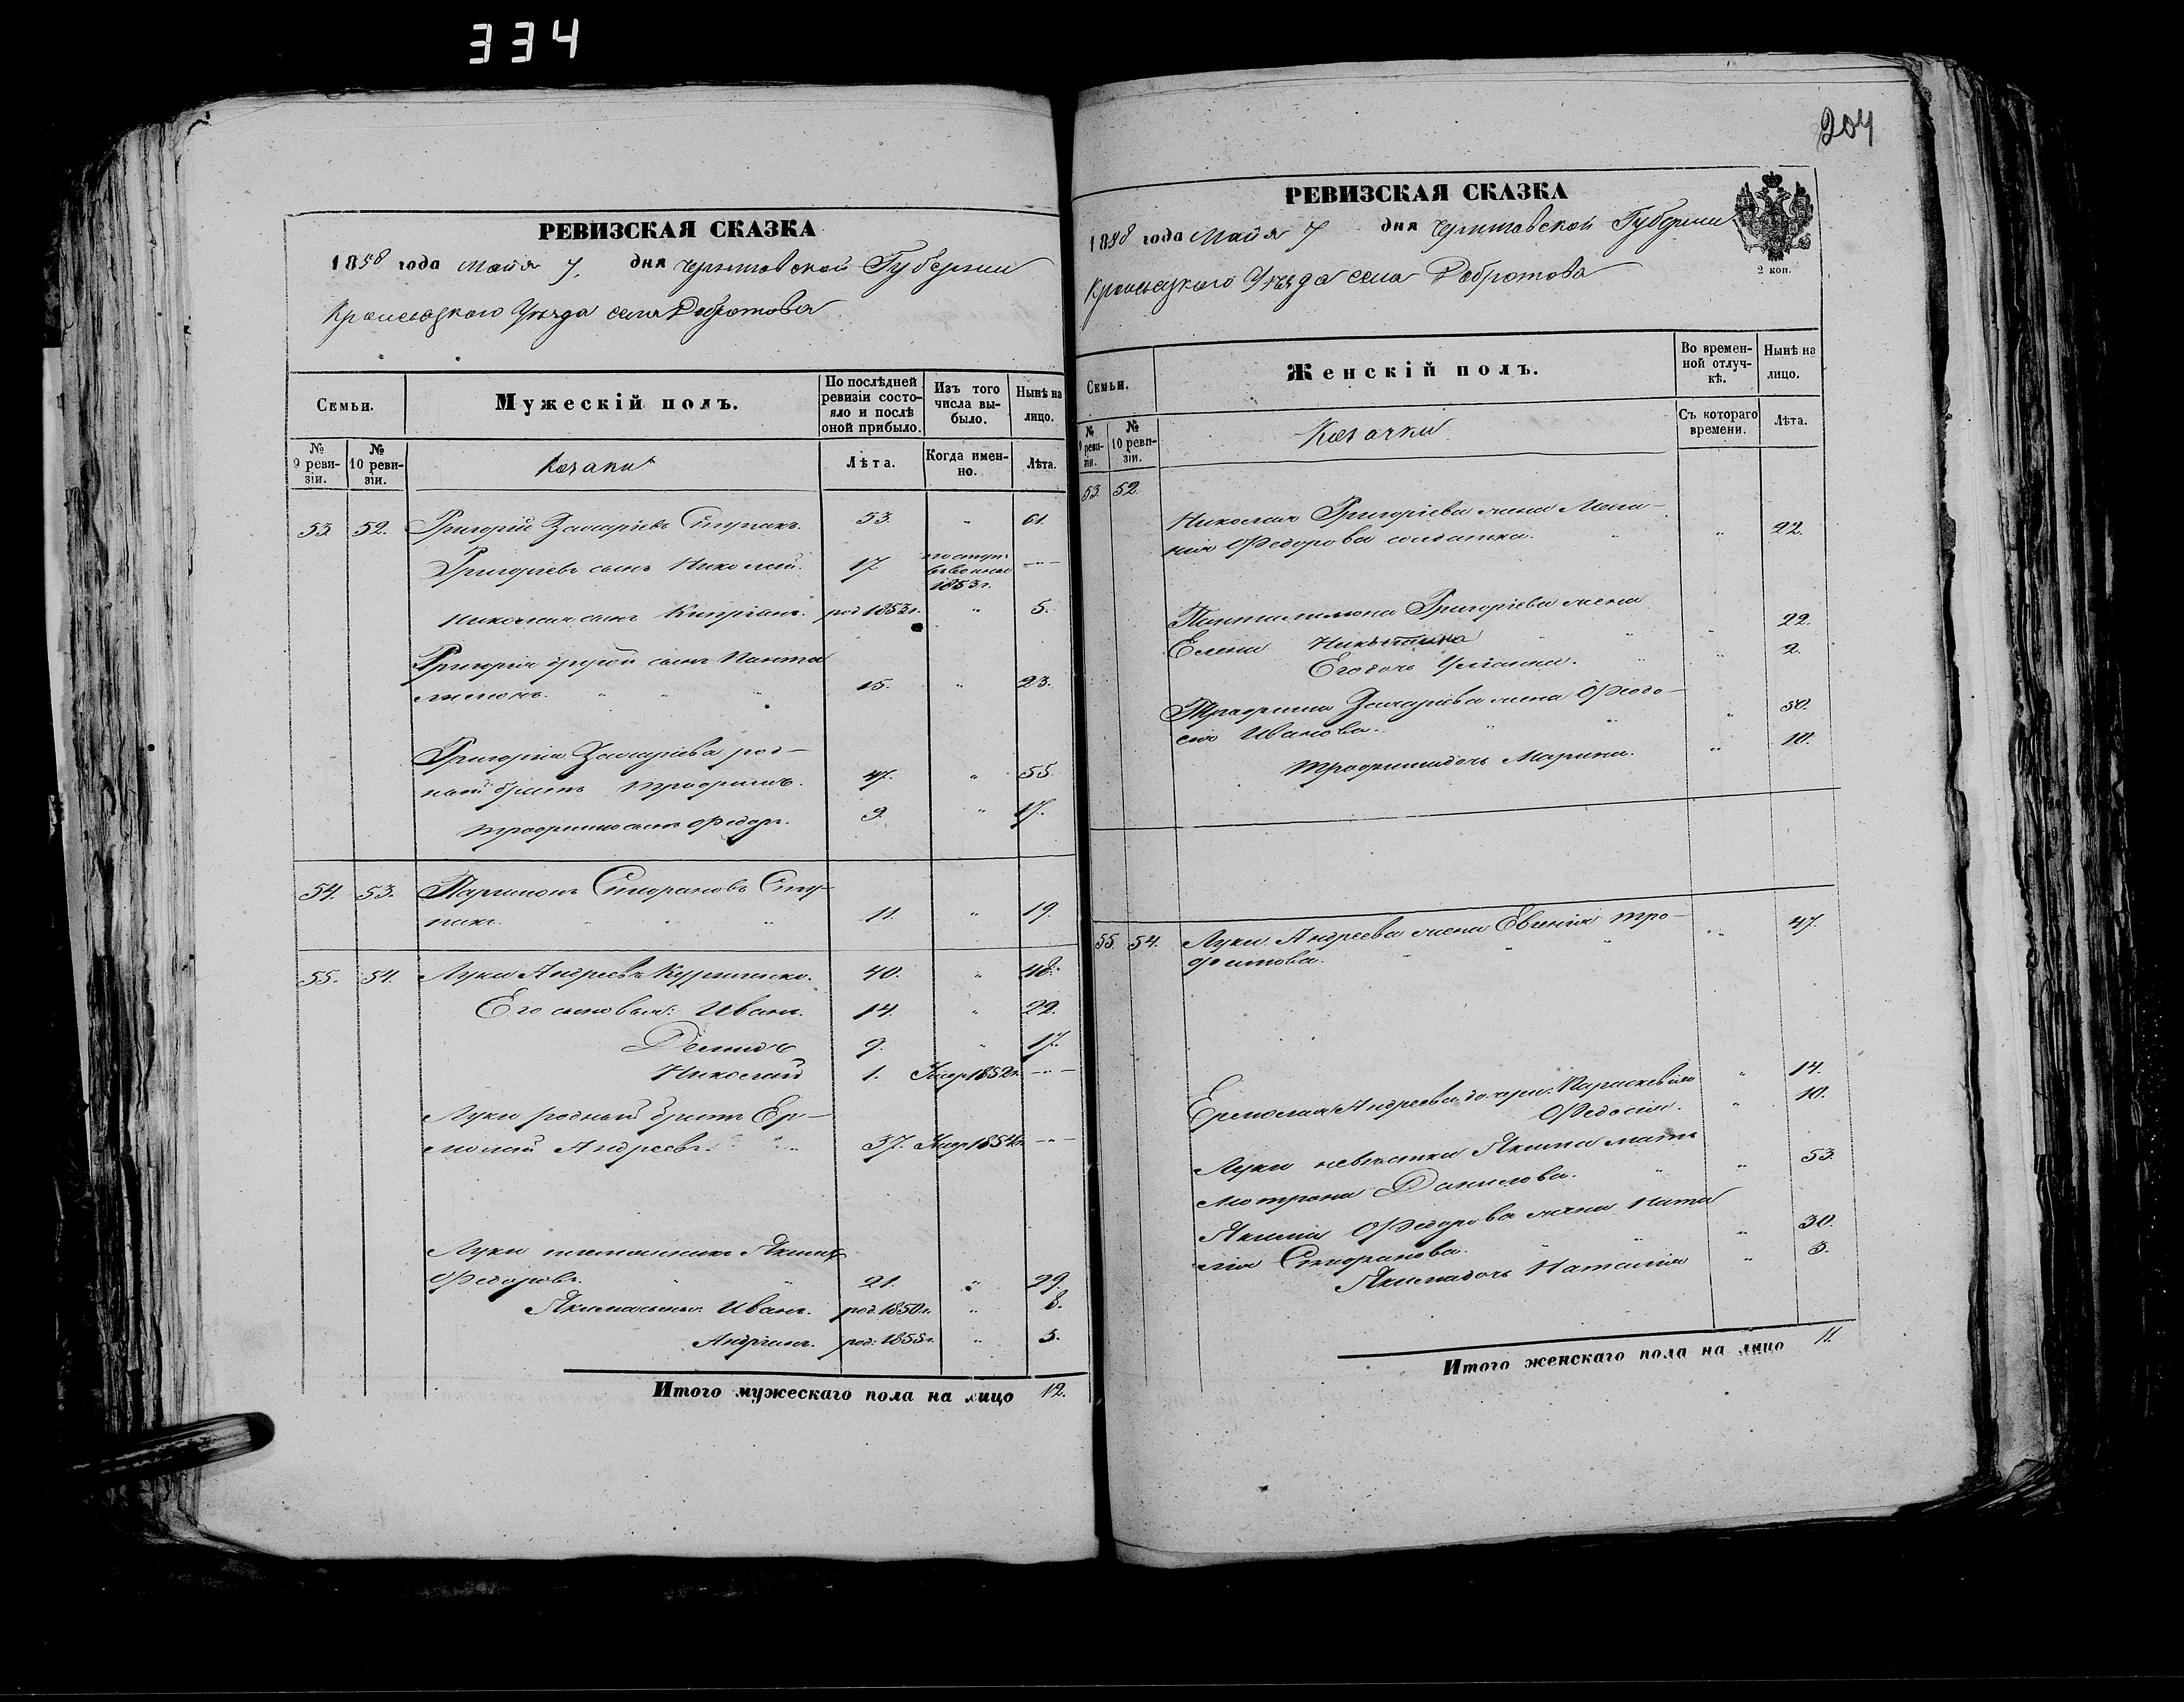 334
РЕВИЗСКАЯ СКАЗКА
1858 года Мая 7. дня Черниговской Губернии
Кролевецкого Уезда села Добротова
Семьи.
Мужескій полъ.
По послѣдней ревизіи состояло и послѣ оной прибыло.
Изъ того числа выбыло.
Нынѣ на лицо.
№ 9 ревизіи.
№ 10 ревизіи.
Козаки
Лѣта.
Когда именно.
Лѣта.
53. 52. Григорій Захаріевъ Ступакъ. 53. " 61.
Григоріевъ сынъ Николай. 17. поступ. въ воины 1853 г. —"—
Николая сынъ Кипріянъ. род 1853 г. " 5.
Григорія другой сынъ Панте
лимонъ. " " " 15. " 23.
Григорія Захаріева род-
ный братъ Трофимъ. 47. " 55.
Трофима сынъ Федоръ. 9. " 17.
54. 53. Парфионъ Стефановъ Сту-
пакъ. " " " 11. " 19.
55. 54. Лука Андреевъ 40. " 48.
Его сыновья: Иванъ. 14. " 22.
Демидъ 9. " 17.
Николай 1. Умер 1852 г. —"—
Луки родный братъ Ер-
молай Андреевъ. " " 37. Умер 1854 г. —"—
Луки племянникъ Якимъ
Федоровъ. " " 21. " 29.
Якима сынъ: Иванъ. род. 1850 г. " 8.
род. 1855 г. " 3.
Итого мужескаго пола на лицо 12.
204
РЕВИЗСКАЯ СКАЗКА
1858 года Мая 7 дня Черниговской Губернии
Кролевецкого Уезда села Добротова
2 коп.
Семьи.
Женскій полъ.
Во временной отлучкѣ.
Нынѣ на лицо.
№ 9 ревизіи.
№ 10 ревизіи.
Козачки
Съ котораго времени.
Лѣта.
53. 52.
Николая Григоріева жена Мела-
нія Федорова солдатка. " " 22.
Пантелимона Григоріева жена
Елена Никитина " " 22.
Его дочь Ульяна. " " 2.
Трофима Захаріева жена Феодо-
сія Иванова. " " " 50.
Трофима дочь Марина. " 10.
55. 54. Луки Андреева жена Евгенія Тро-
фимова. " " " 47.
Ермолая Андреева дочери: Параскевія " 14.
Федосія. " 10.
Луки невѣстка Якима мать
Мотрона Данилова. " " 53.
Якима Федорова жена Ната
лія Стефанова. " " " 30.
Якима дочь Наталія " 3.
Итого женскаго пола на лицо 11.